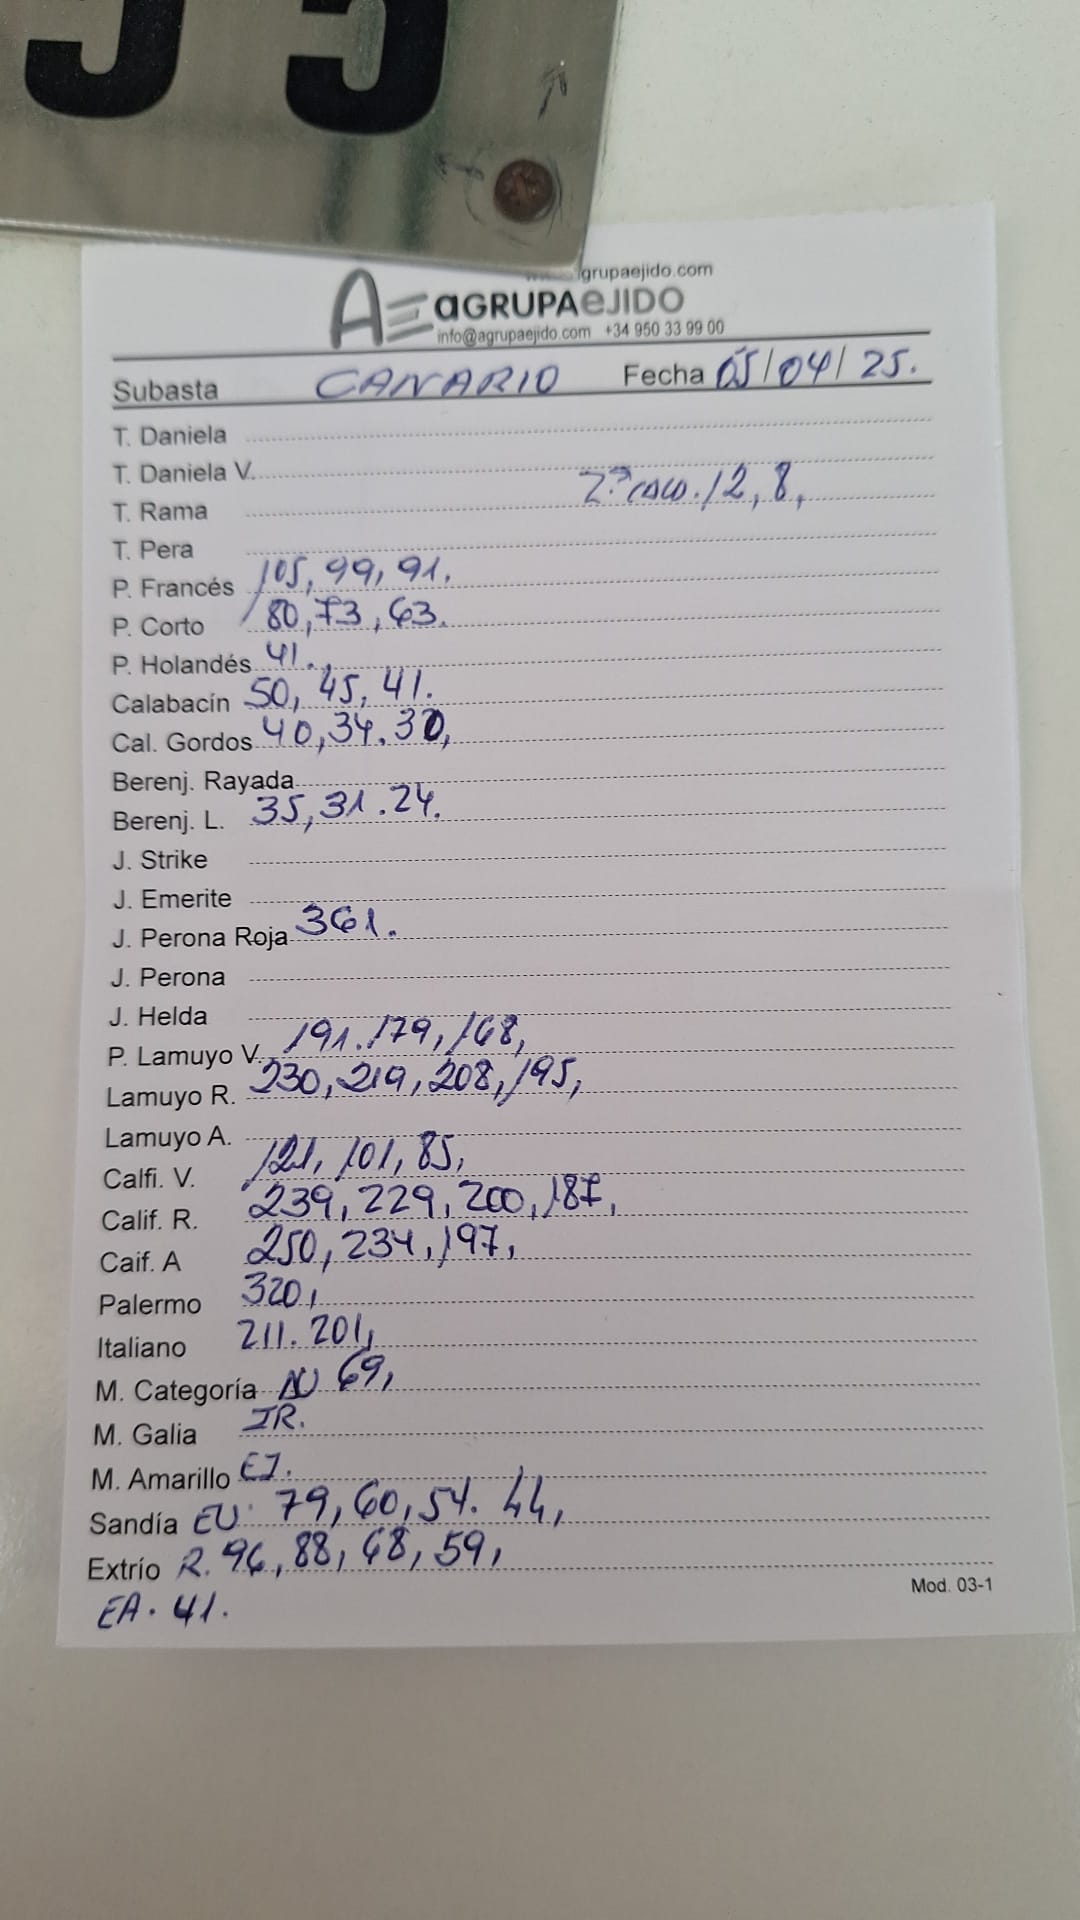 55
grupaejido.com
AE aGRUPAeJIDO
info@agrupaejido.com +34 950 33 99 00
Subasta CANARIO Fecha 05/04/25.
T. Daniela
T. Daniela V.
T. Rama 2ª coco. 12, 8,
T. Pera
P. Francés 105, 99, 91.
P. Corto 80, 73, 63.
P. Holandés 41.
Calabacín 50, 45, 41.
Cal. Gordos 40, 34. 30,
Berenj. Rayada
Berenj. L. 35, 31. 24.
J. Strike
J. Emerite
J. Perona Roja 361.
J. Perona
J. Helda
P. Lamuyo V. 191. 179, 168,
Lamuyo R. 230, 219, 208, 195,
Lamuyo A.
Calfi. V. 121, 101, 85,
Calif. R. 239, 229, 200, 187,
Caif. A 250, 234, 197,
Palermo 320,
Italiano 211. 201,
M. Categoría NU 69,
M. Galia IR.
M. Amarillo EJ.
Sandía EU. 79, 60, 54. 44,
Extrío R. 96, 88, 68, 59,
EA. 41.
Mod. 03-1